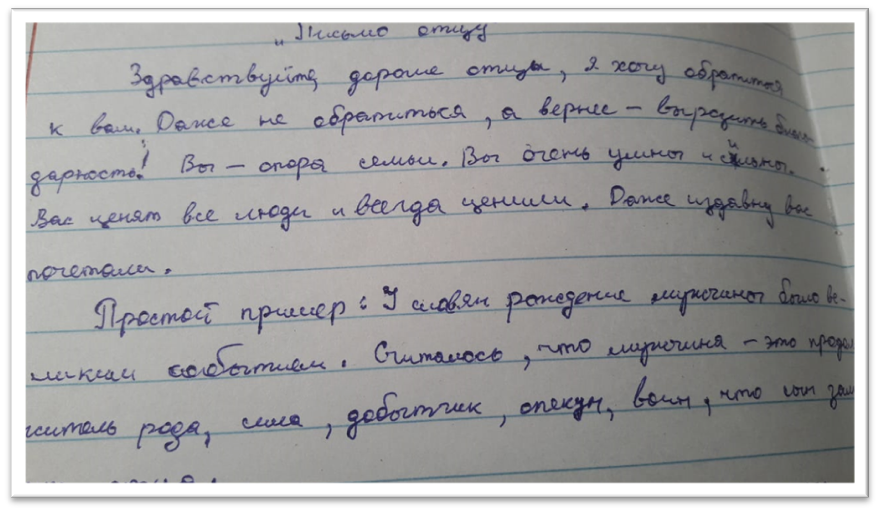 „Письмо отцу
Здравствуйте, дорогие отцы, я хочу обратиться
к вам. Даже не обратиться, а вернее – выразить благо-
дарность! Вы – опора семьи. Вы очень умны и сильны.
Вас ценят все люди и всегда ценили. Даже издавну вас
почетали.
Простой пример: У словян рождение мужчины было ве-
ликим событием. Считалось, что мужчина – это продол
житель рода, сила, добытчик, опекун, воин, что сын зам